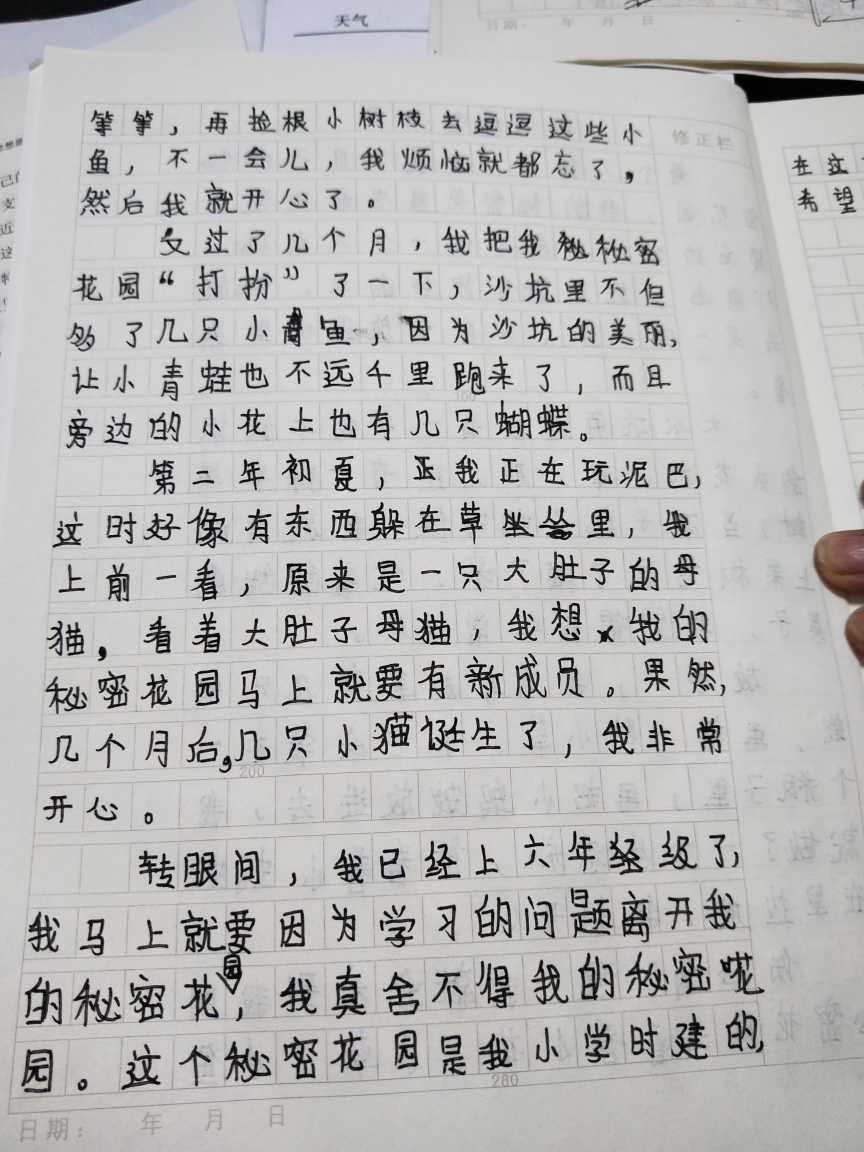 天气
日期: 年 月 日
等等，再捡根小树枝去逗逗这些小
修正栏
鱼，不一会儿，我烦恼就都忘了，
然后我就开心了。
又过了几个月，我把我秘秘密
花园“打扮”了一下，沙坑里不但
了几只小鱼，因为沙坑的美丽，
让小青蛙也不远千里跑来了，而且
旁边的小花上也有几只蝴蝶。
100
第二年初夏，正我正在玩泥巴，
这时好像有东西躲在草丛里，我
上前一看，原来是一只大肚子的母
猫，看着大肚子母猫，我想我的
秘密花园马上就要有新成员。果然，
几个月后，几只小猫诞生了，我非常
200
开心。
转眼间，我已经上六年级了，
我马上就要因为学习的问题离开我
的秘密花园，我真舍不得我的秘密花
园。这个秘密花园是我小学时建的，
280
日期: 年 月 日
在这
希望